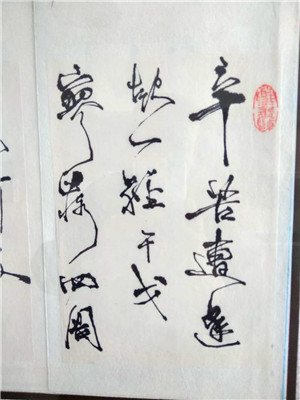 辛苦遭逢
起一經干戈
寥落四周